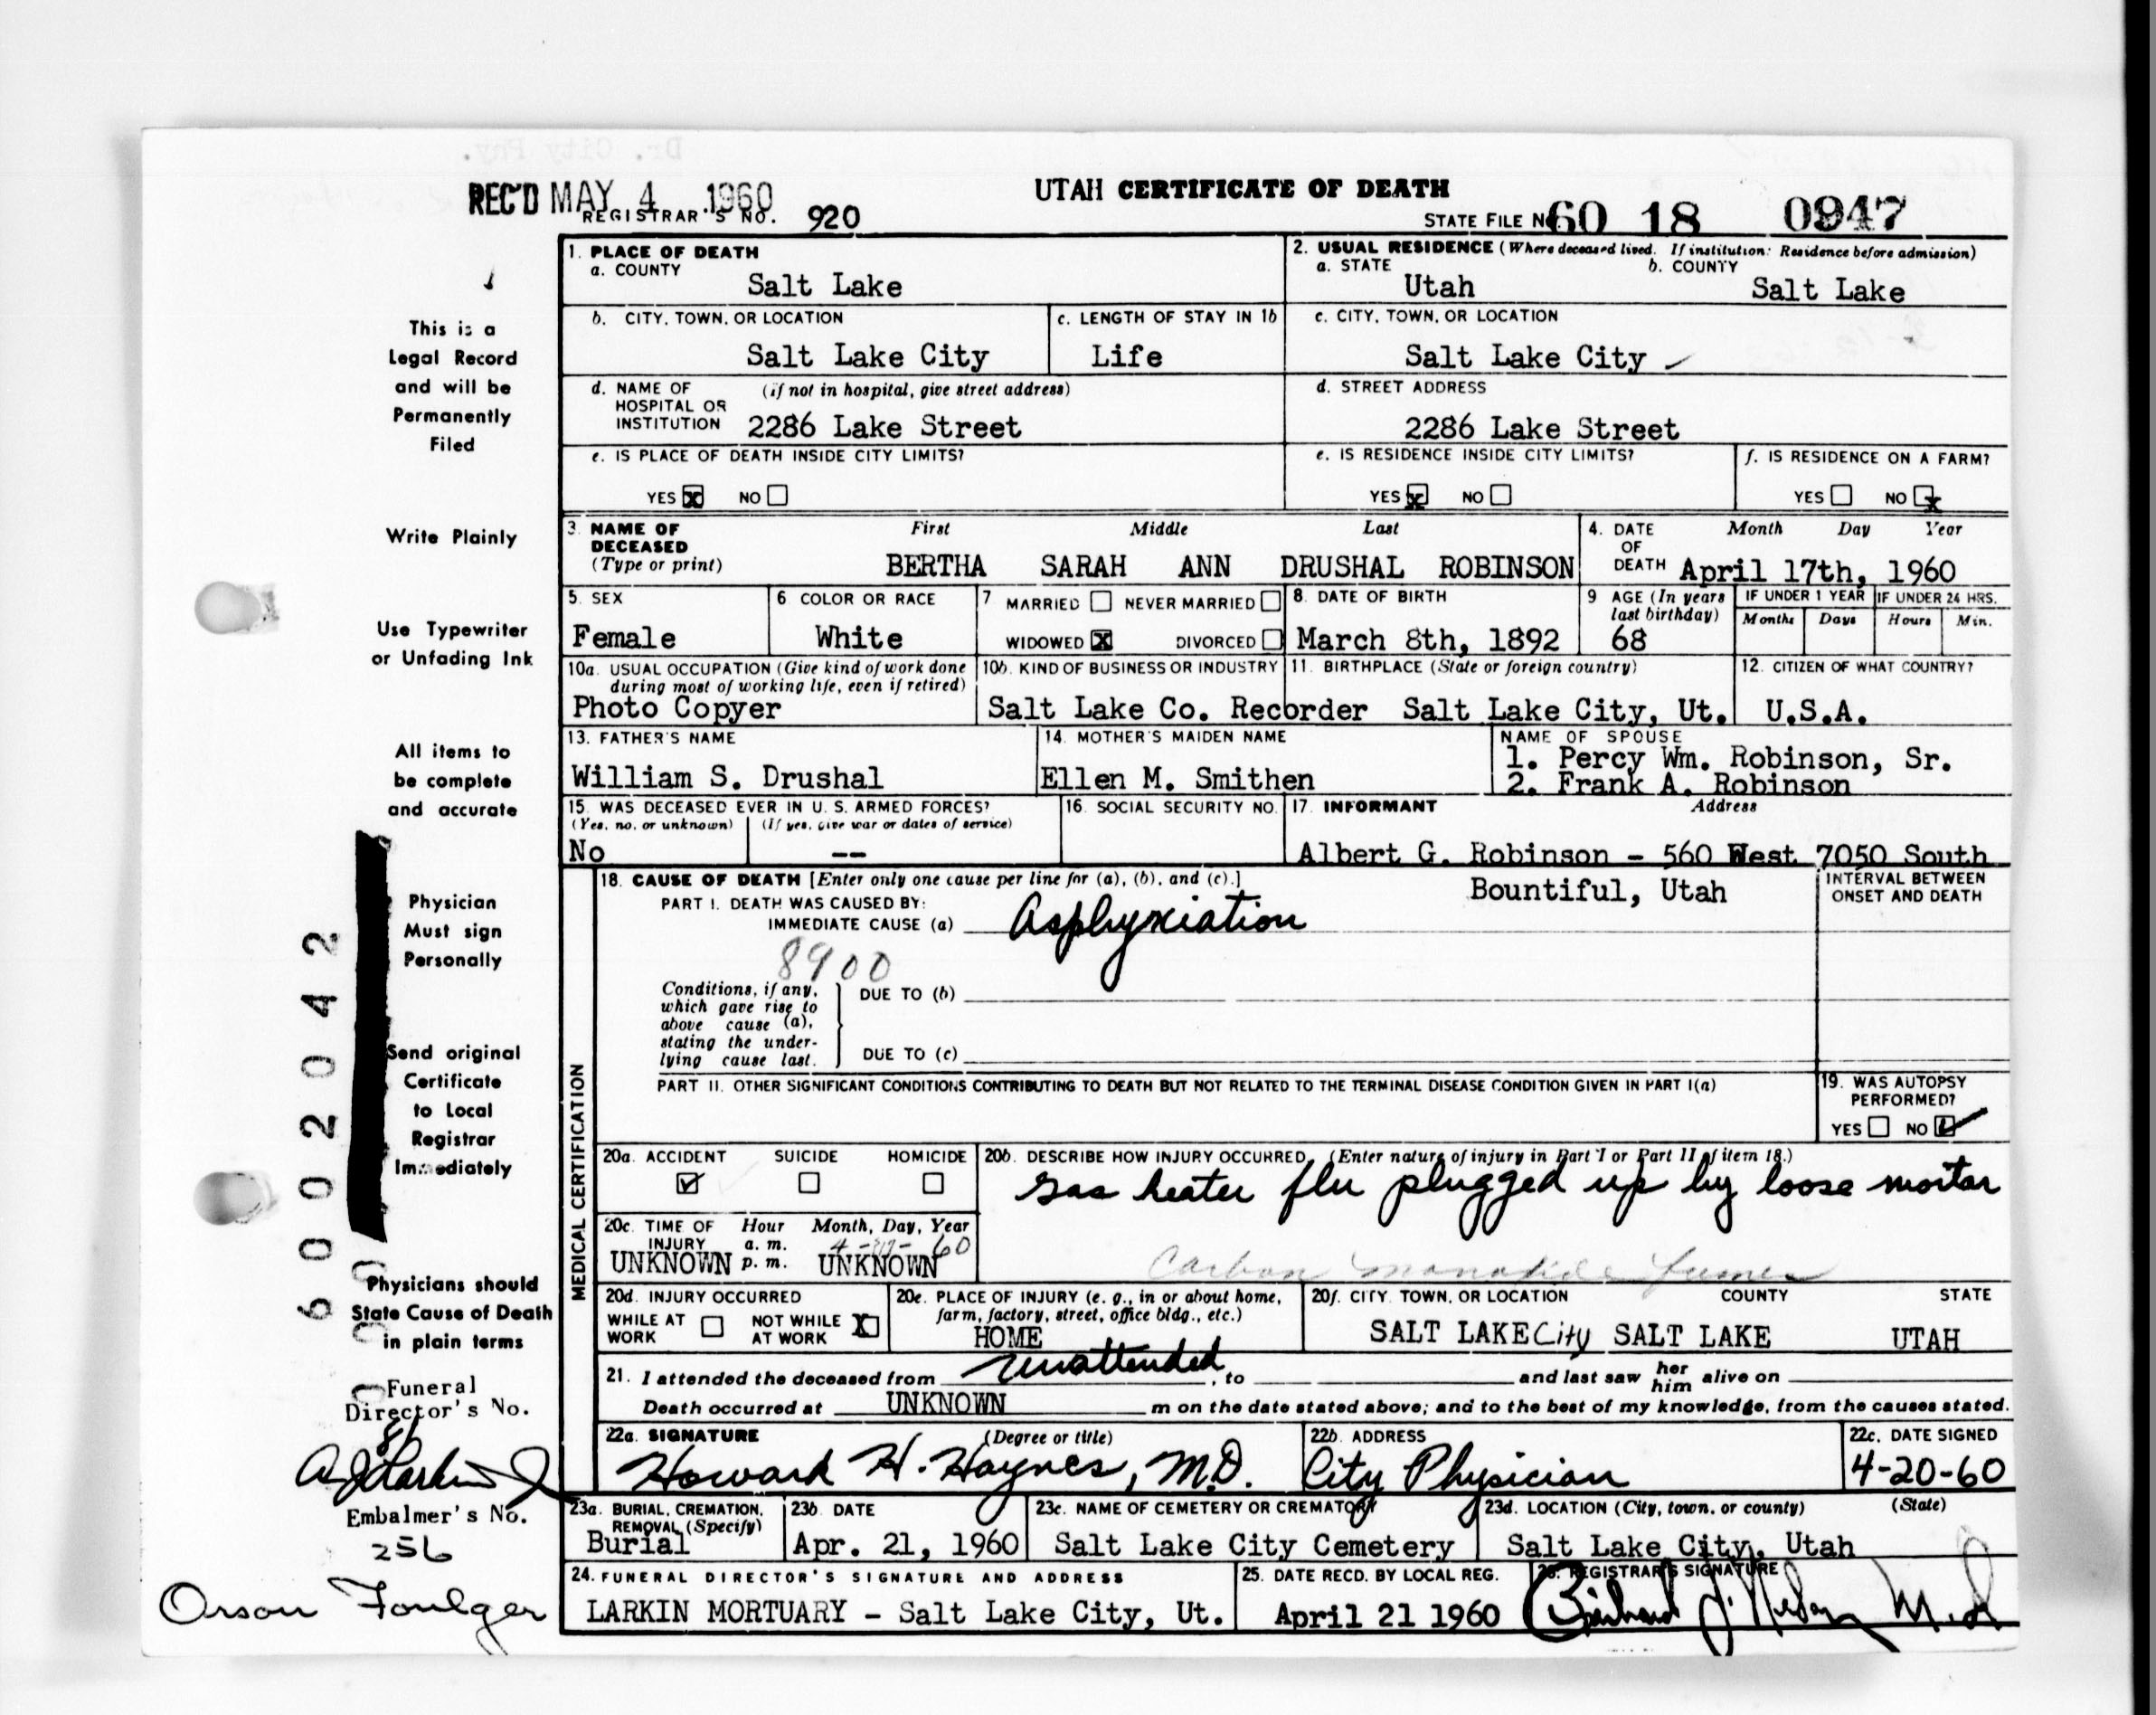 REC'D MAY 4 1960
UTAH CERTIFICATE OF DEATH
REGISTRAR'S NO. 920
STATE FILE NO. 60 18 0947
1. PLACE OF DEATH
a. COUNTY
Salt Lake
2. USUAL RESIDENCE (Where deceased lived. If institution: Residence before admission)
a. STATE
Utah
b. COUNTY
Salt Lake
b. CITY, TOWN, OR LOCATION
Salt Lake City
c. LENGTH OF STAY IN 1b
Life
c. CITY, TOWN, OR LOCATION
Salt Lake City
d. NAME OF HOSPITAL OR INSTITUTION
(if not in hospital, give street address)
2286 Lake Street
d. STREET ADDRESS
2286 Lake Street
e. IS PLACE OF DEATH INSIDE CITY LIMITS?
YES X NO
e. IS RESIDENCE INSIDE CITY LIMITS?
YES X NO
f. IS RESIDENCE ON A FARM?
YES NO X
3. NAME OF DECEASED
(Type or print)
First Middle Last
BERTHA SARAH ANN DRUSHAL ROBINSON
4. DATE OF DEATH
Month Day Year
April 17th, 1960
5. SEX
Female
6 COLOR OR RACE
White
7 MARRIED NEVER MARRIED
WIDOWED X DIVORCED
8. DATE OF BIRTH
March 8th, 1892
9 AGE (In years last birthday)
68
IF UNDER 1 YEAR
Months Days
IF UNDER 24 HRS.
Hours Min.
10a. USUAL OCCUPATION (Give kind of work done during most of working life, even if retired)
Photo Copyer
10b. KIND OF BUSINESS OR INDUSTRY
Salt Lake Co. Recorder
11. BIRTHPLACE (State or foreign country)
Salt Lake City, Ut.
12. CITIZEN OF WHAT COUNTRY?
U.S.A.
13. FATHER'S NAME
William S. Drushal
14. MOTHER'S MAIDEN NAME
Ellen M. Smithen
NAME OF SPOUSE
1. Percy Wm. Robinson, Sr.
2. Frank A. Robinson
15. WAS DECEASED EVER IN U. S. ARMED FORCES?
(Yes, no, or unknown) (If yes, give war or dates of service)
No --
16. SOCIAL SECURITY NO.
17. INFORMANT Address
Albert G. Robinson - 560 West 7050 South
Bountiful, Utah
MEDICAL CERTIFICATION
18. CAUSE OF DEATH [Enter only one cause per line for (a), (b), and (c).]
INTERVAL BETWEEN ONSET AND DEATH
PART I. DEATH WAS CAUSED BY:
IMMEDIATE CAUSE (a) Asphyxiation
8900
Conditions, if any, which gave rise to above cause (a), stating the underlying cause last.
DUE TO (b)
DUE TO (c)
PART II. OTHER SIGNIFICANT CONDITIONS CONTRIBUTING TO DEATH BUT NOT RELATED TO THE TERMINAL DISEASE CONDITION GIVEN IN PART I(a)
19. WAS AUTOPSY PERFORMED?
YES NO
20a. ACCIDENT SUICIDE HOMICIDE
20b. DESCRIBE HOW INJURY OCCURRED. (Enter nature of injury in Part I or Part II of item 18.)
Gas heater flu plugged up by loose mortar
Carbon monoxide fumes
20c. TIME OF INJURY
Hour a. m. p. m.
Month, Day, Year
UNKNOWN UNKNOWN
20d. INJURY OCCURRED
WHILE AT WORK
NOT WHILE AT WORK X
20e. PLACE OF INJURY (e. g., in or about home, farm, factory, street, office bldg., etc.)
HOME
20f. CITY, TOWN, OR LOCATION COUNTY STATE
SALT LAKE City SALT LAKE UTAH
21. I attended the deceased from unattended, to and last saw her him alive on
Death occurred at UNKNOWN m on the date stated above; and to the best of my knowledge, from the causes stated.
22a. SIGNATURE (Degree or title)
Howard H. Haynes, M.D.
22b. ADDRESS
City Physician
22c. DATE SIGNED
4-20-60
23a. BURIAL, CREMATION, REMOVAL (Specify)
Burial
23b. DATE
Apr. 21, 1960
23c. NAME OF CEMETERY OR CREMATORY
Salt Lake City Cemetery
23d. LOCATION (City, town, or county) (State)
Salt Lake City, Utah
24. FUNERAL DIRECTOR'S SIGNATURE AND ADDRESS
LARKIN MORTUARY - Salt Lake City, Ut.
25. DATE RECD. BY LOCAL REG.
April 21 1960
26. REGISTRAR'S SIGNATURE
This is a
Legal Record
and will be
Permanently
Filed
Write Plainly
Use Typewriter
or Unfading Ink
All items to
be complete
and accurate
Physician
Must sign
Personally
Send original
Certificate
to Local
Registrar
Immediately
Physicians should
State Cause of Death
in plain terms
Funeral
Director's No.
81
Embalmer's No.
256
Orson Foulger
6002042